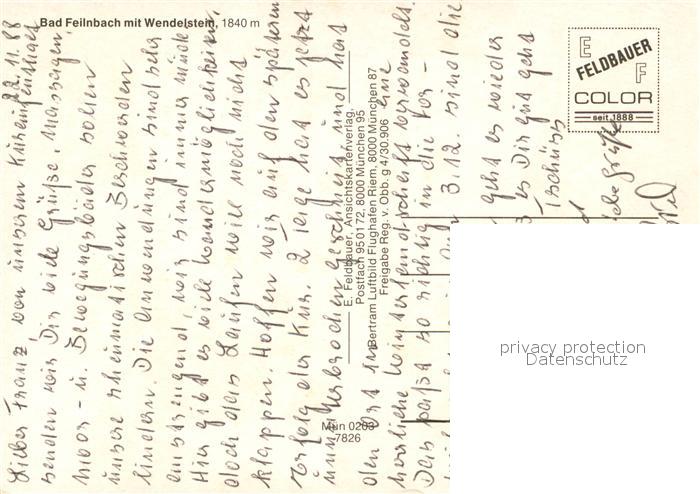 Bad Feilnbach mit Wendelstein, 1840 m
22.11.88
Lieber Franz von unserem Kuraufenthalt
senden wir Dir viele Grüße. Massagen,
Moor- u. Bewegungsbäder sollen
unsere rheumatischen Beschwerden
lindern. Die Anwendungen sind sehr
anstrengend, wir sind immer müde
Hier gibt es viele Wandermöglichkeiten,
doch das Laufen will noch nicht
klappen. Hoffen wir auf den späteren
Erfolg der Kur. 2 Tage hat es jetzt
ununterbrochen geschneit und hat
den Ort in eine
herrliche Winterlandschaft verwandelt.
Das paßt so richtig in die Vor-
3.12. sind die
geht es wieder
es Dir gut geht
Tschüss
Liebe Grüße
E. Feldbauer, Ansichtskartenverlag,
Postfach 95 01 72, 8000 München 95
Bertram Luftbild Flughafen Riem, 8000 München 87
Freigabe Reg. v. Obb. g 4/30.906
Mün 0203
7826
E FELDBAUER F
COLOR
seit 1888
privacy protection
Datenschutz